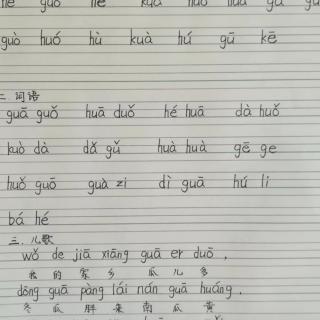 guò huó hù kuà hú gū kē
二. 词语
guā guǒ huā duǒ hé huā dà huǒ
kuò dà dǎ gǔ huà huà gē ge
huǒ guō guà zi dì guā hú li
bá hé
三. 儿歌
wǒ de jiā xiāng guā er duō ,
我 的 家 乡 瓜 儿 多
dōng guā pàng lái nán guā huáng ,
冬 瓜 胖 来 南 瓜 黄